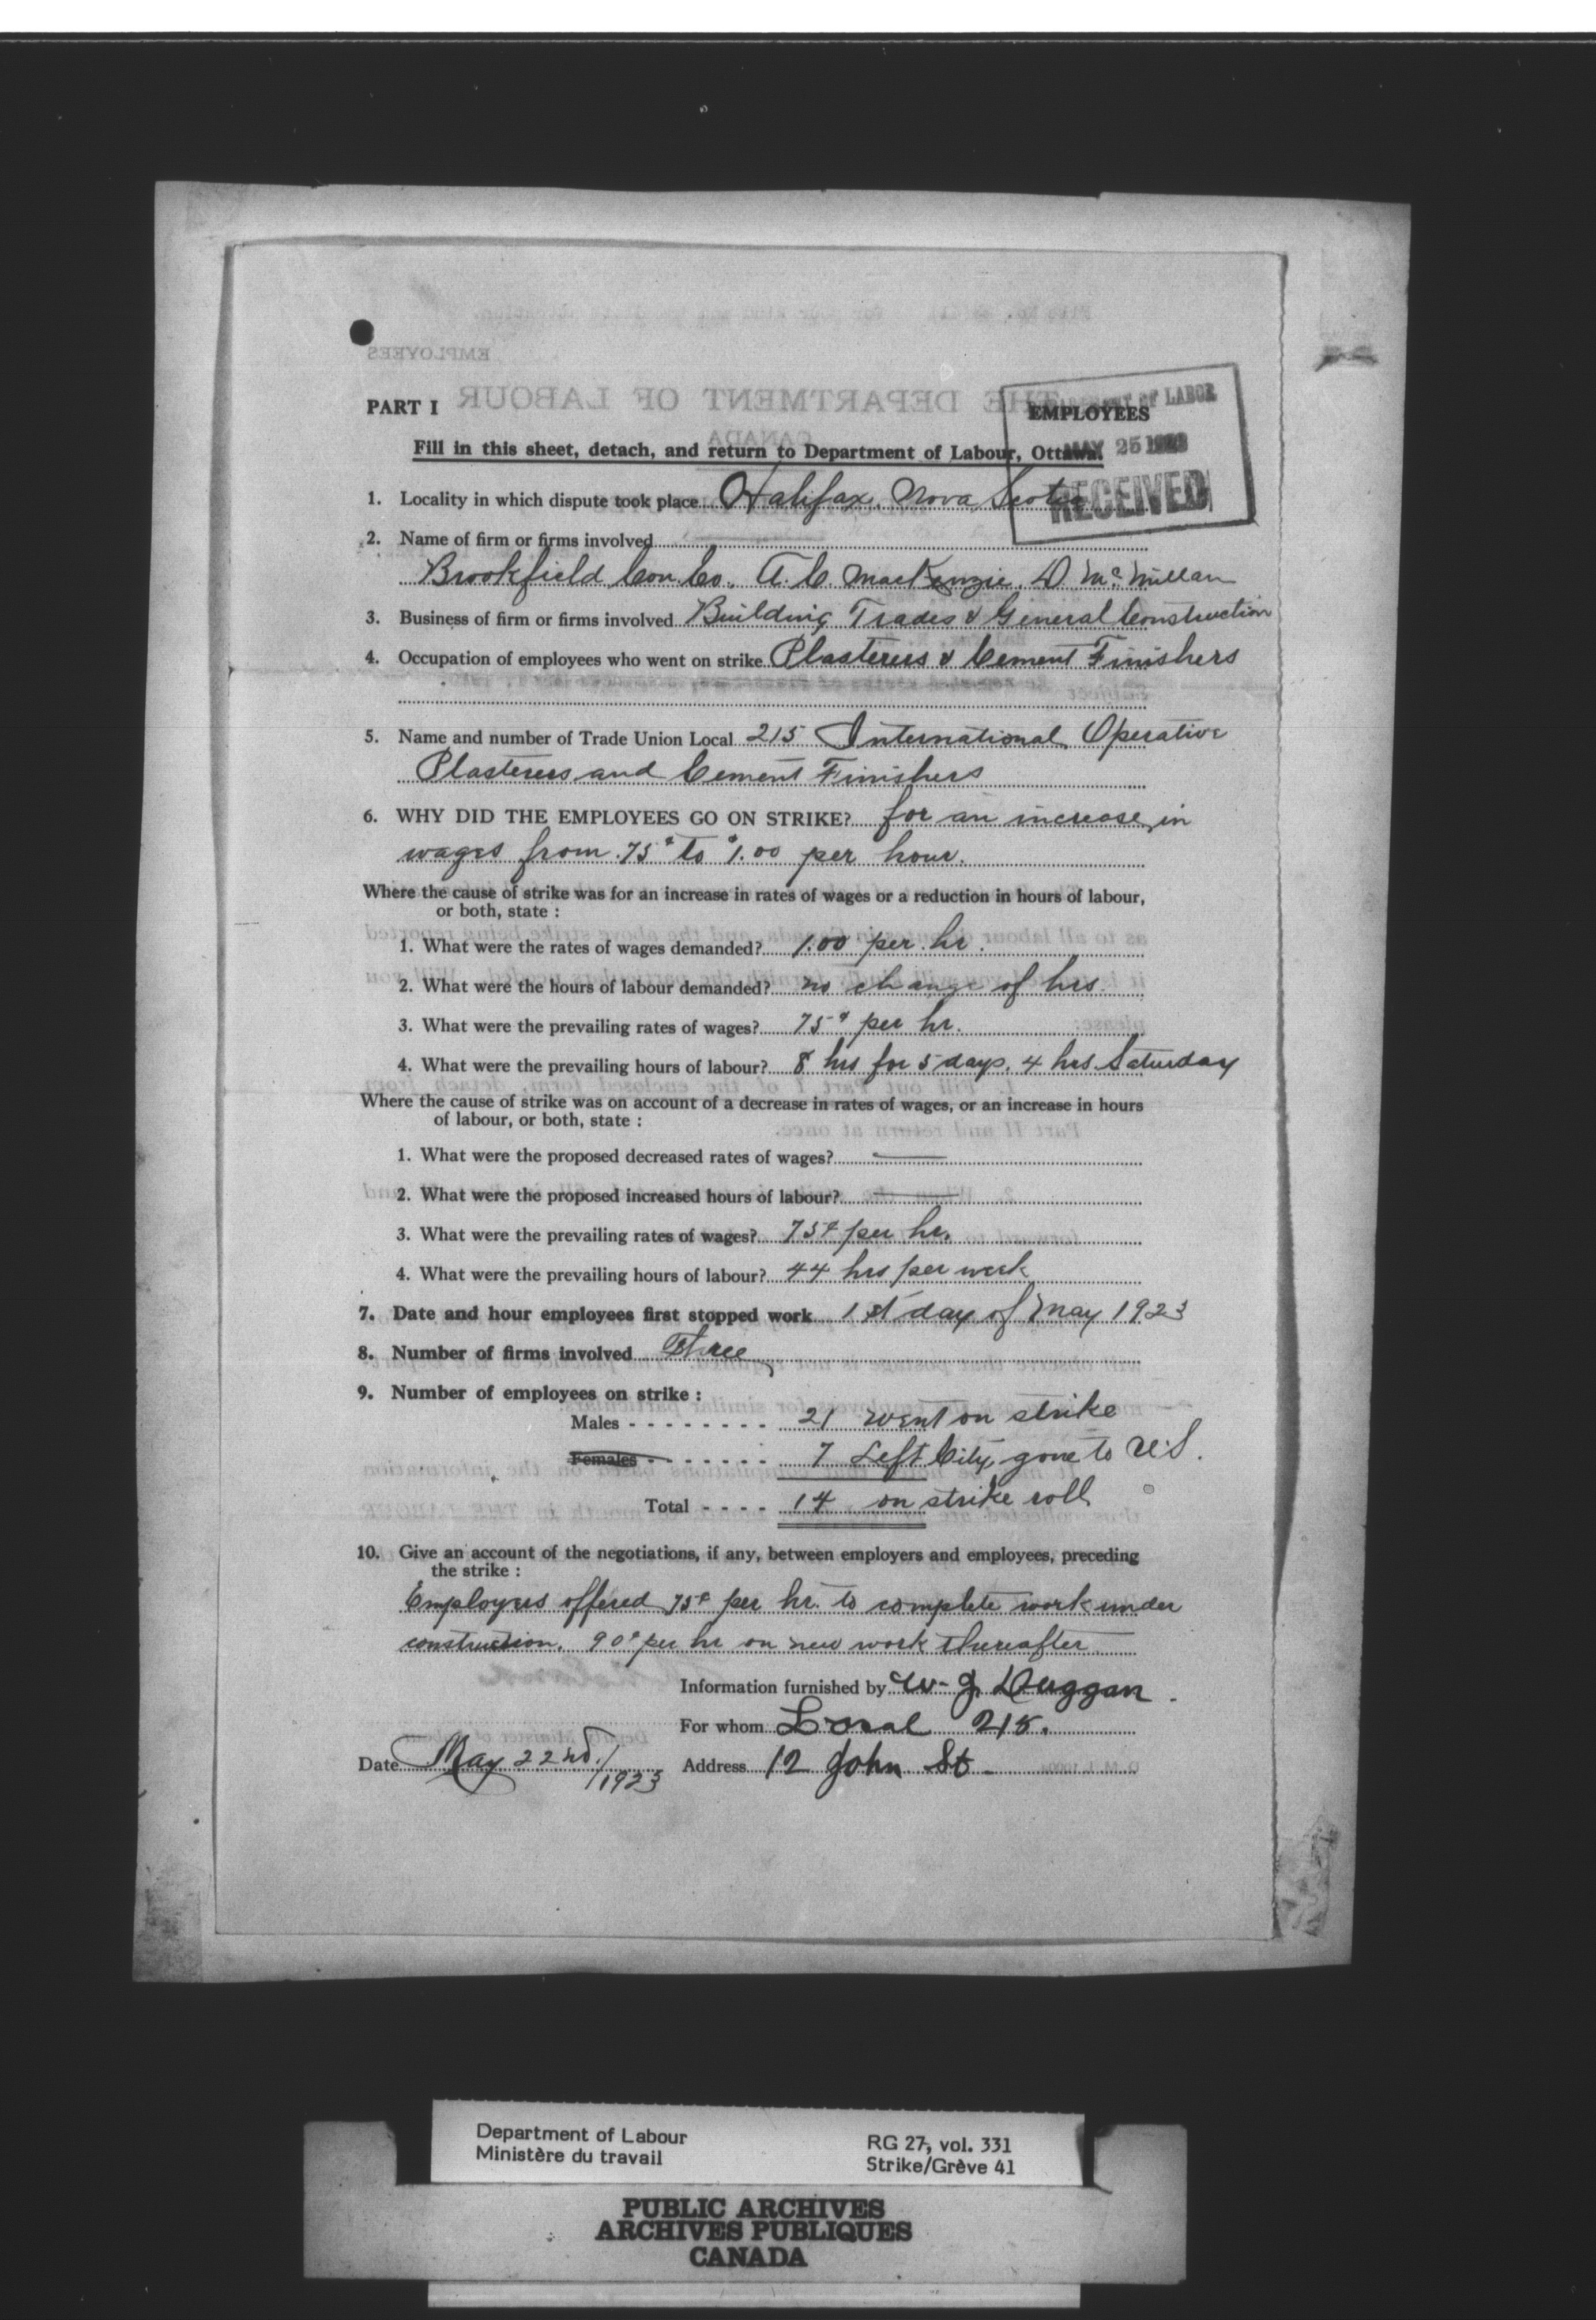 PART I
EMPLOYEES
DEPARTMENT OF LABOR
MAY 25 1923
RECEIVED
Fill in this sheet, detach, and return to Department of Labour, Ottawa.
1. Locality in which dispute took place Halifax, Nova Scotia
2. Name of firm or firms involved
Brookfield Con Co. A. C. MacKenzie, D McMillan
3. Business of firm or firms involved Building Trades & General Construction
4. Occupation of employees who went on strike Plasterers & Cement Finishers
5. Name and number of Trade Union Local 215 International Operative
Plasterers and Cement Finishers
6. WHY DID THE EMPLOYEES GO ON STRIKE? for an increase in
wages from .75¢ to $1.00 per hour.
Where the cause of strike was for an increase in rates of wages or a reduction in hours of labour,
or both, state :
1. What were the rates of wages demanded? 1.00 per hr.
2. What were the hours of labour demanded? no change of hrs
3. What were the prevailing rates of wages? 75¢ per hr.
4. What were the prevailing hours of labour? 8 hrs for 5 days, 4 hrs Saturday
Where the cause of strike was on account of a decrease in rates of wages, or an increase in hours
of labour, or both, state :
1. What were the proposed decreased rates of wages? —
2. What were the proposed increased hours of labour? —
3. What were the prevailing rates of wages? 75¢ per hr.
4. What were the prevailing hours of labour? 44 hrs per week
7. Date and hour employees first stopped work 1st day of May 1923
8. Number of firms involved Three
9. Number of employees on strike :
Males - - - - - - - - 21 went on strike
Females - - - - - - - 7 Left City, gone to U.S.
Total - - - - 14 on strike roll
10. Give an account of the negotiations, if any, between employers and employees, preceding
the strike :
Employers offered 75¢ per hr. to complete work under
construction. 90¢ per hr on new work thereafter
Information furnished by W. J. Duggan.
For whom Local 215.
Date May 22nd/1923
Address 12 John St
Department of Labour
Ministère du travail
RG 27, vol. 331
Strike/Grève 41
PUBLIC ARCHIVES
ARCHIVES PUBLIQUES
CANADA